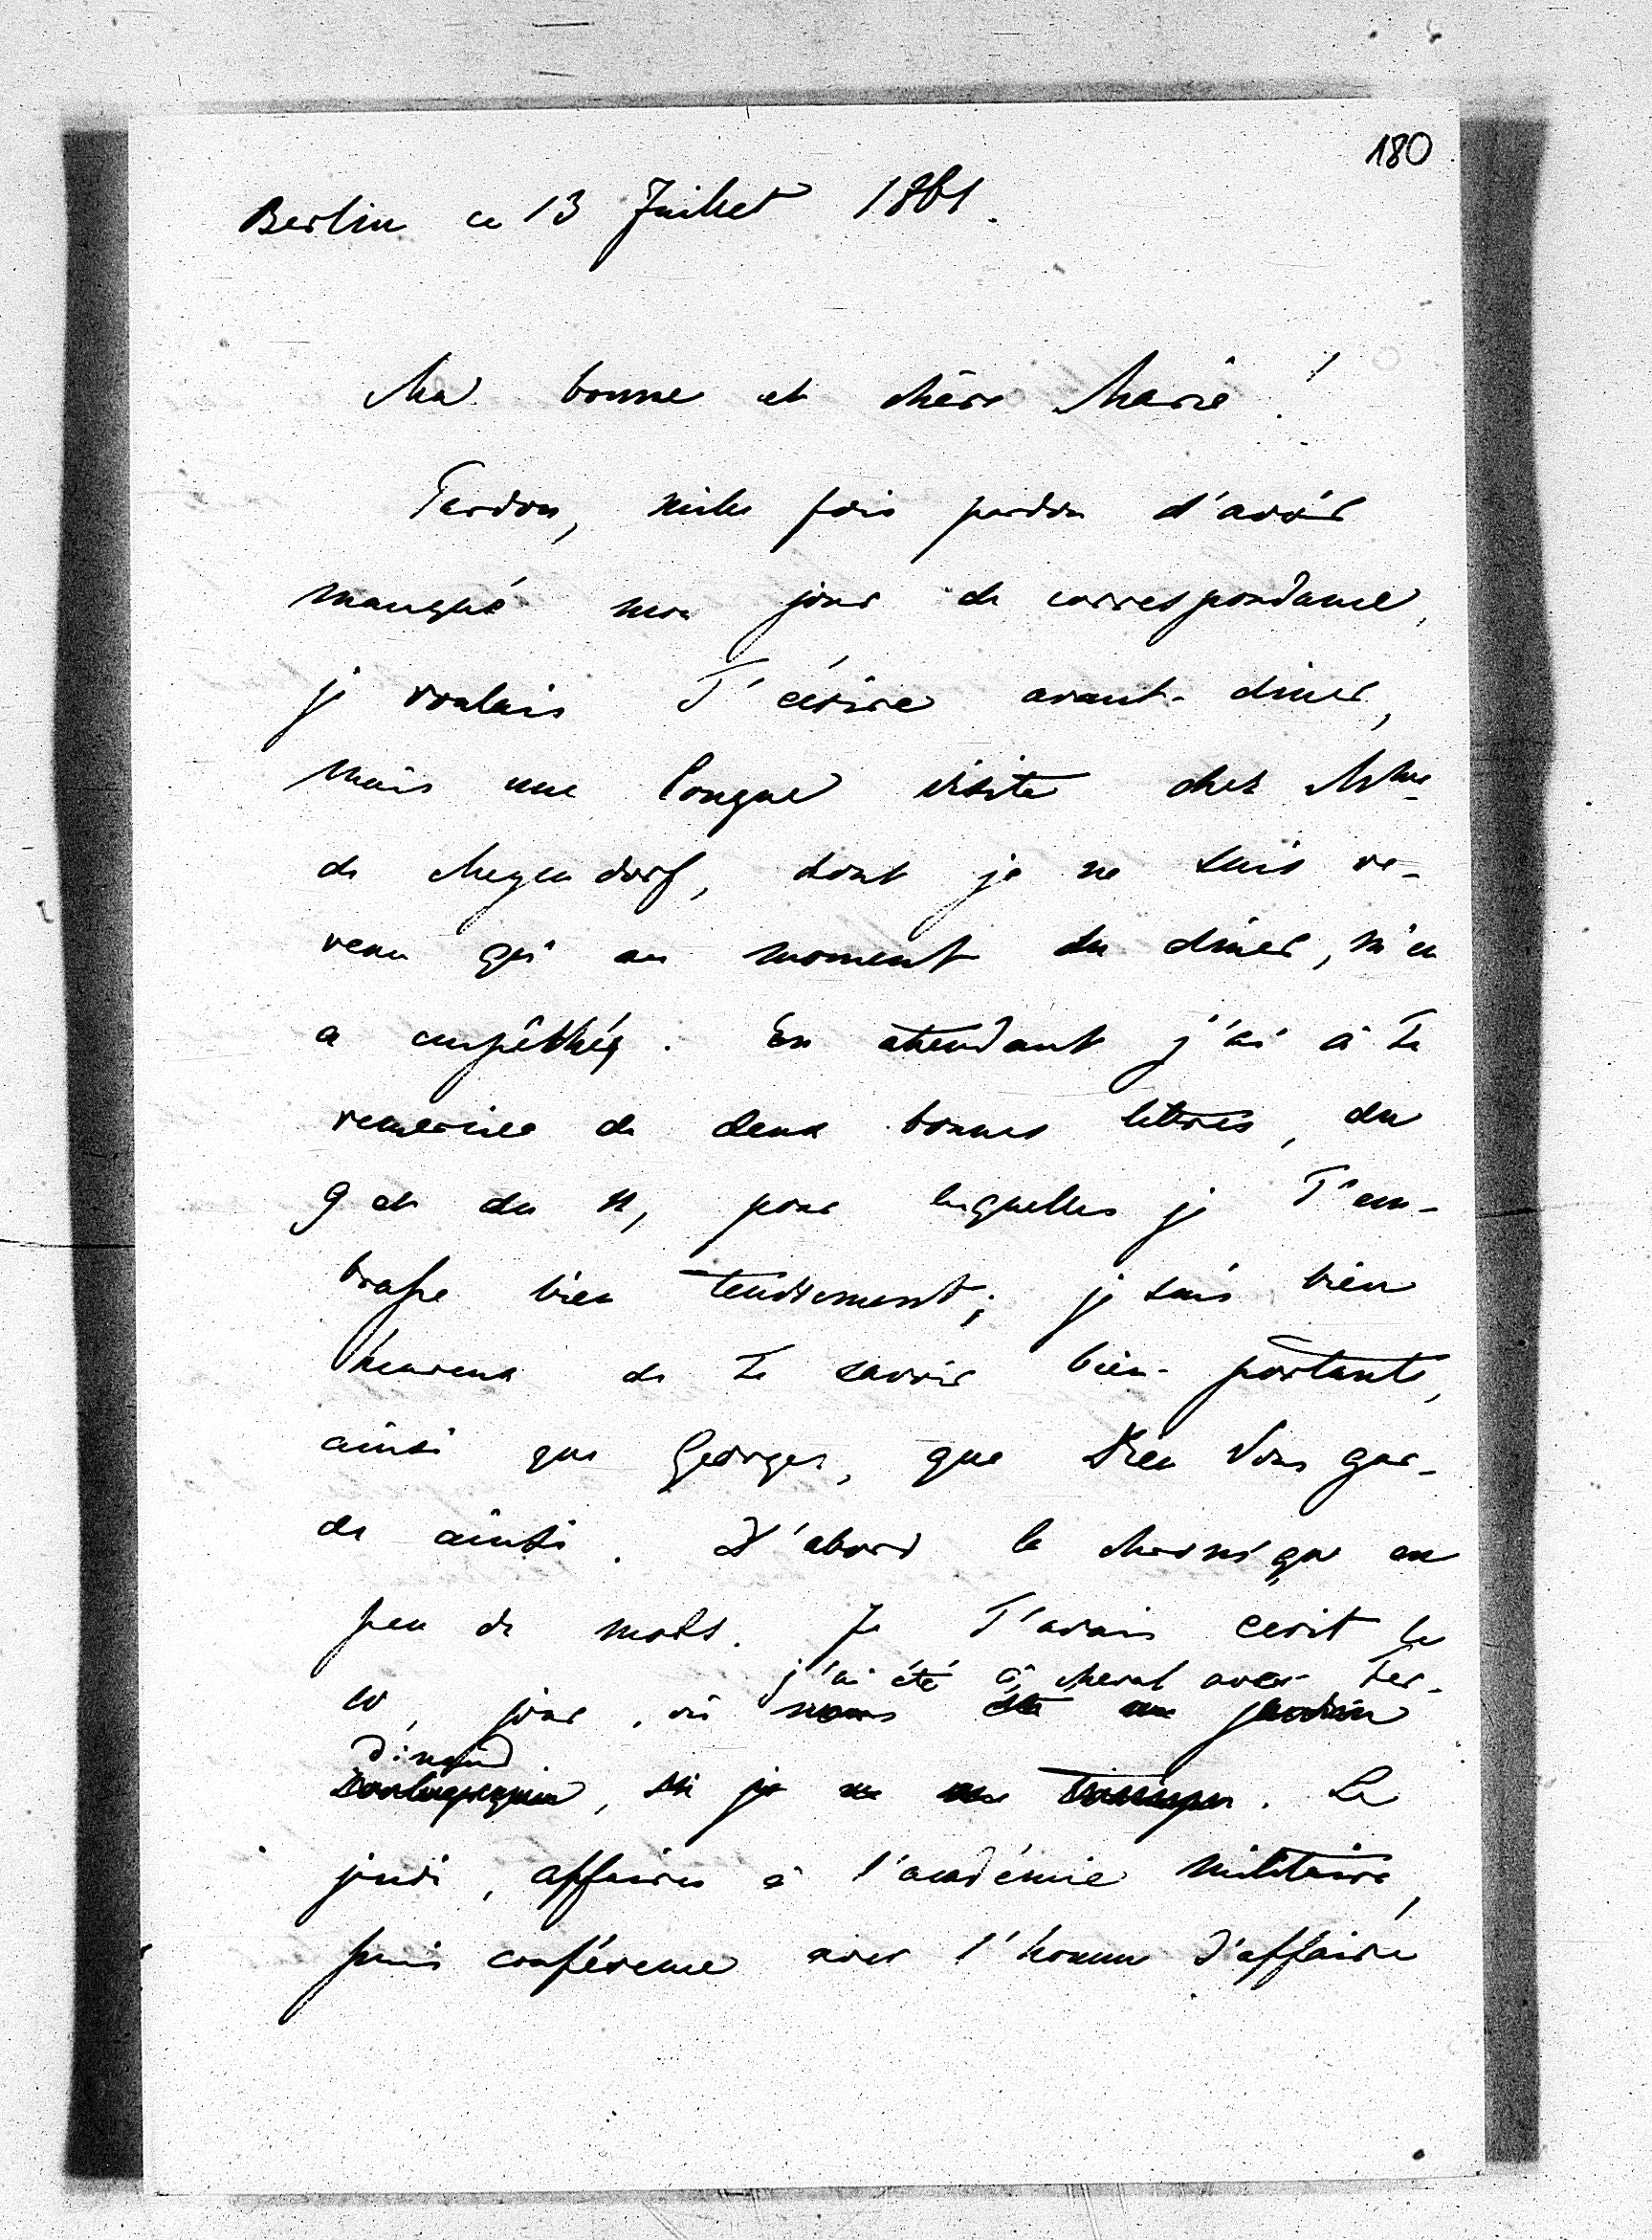 180
Berlin ce 13 Juillet 1861.
Ma bonne et chère Marie!
Pardon, mille fois pardon d'avoir
manqué mon jour de correspondance,
je voulais T'écrire avant-diner,
mais une longue visite chez Mme
de Meyendorf, dont je ne suis re-
venu qu'au moment du diner, m'en
a empêché. En attendant j'ai à Te
remercier de deux bonnes lettres, du
9 et du 11, pour lesquelles je T'em-
brasse bien tendrement; je suis bien
heureux de Te savoir bien-portante,
ainsi que Georges, que Dieu Vous gar-
de ainsi. D'abord la chronique en
peu de mots. Je T'avais écrit le
10, jour, où
j'ai été à cheval avec Fer-
dinand
. Le
jeudi, affaires à l'académie militaire,
puis conférence avec l'homme d'affaire